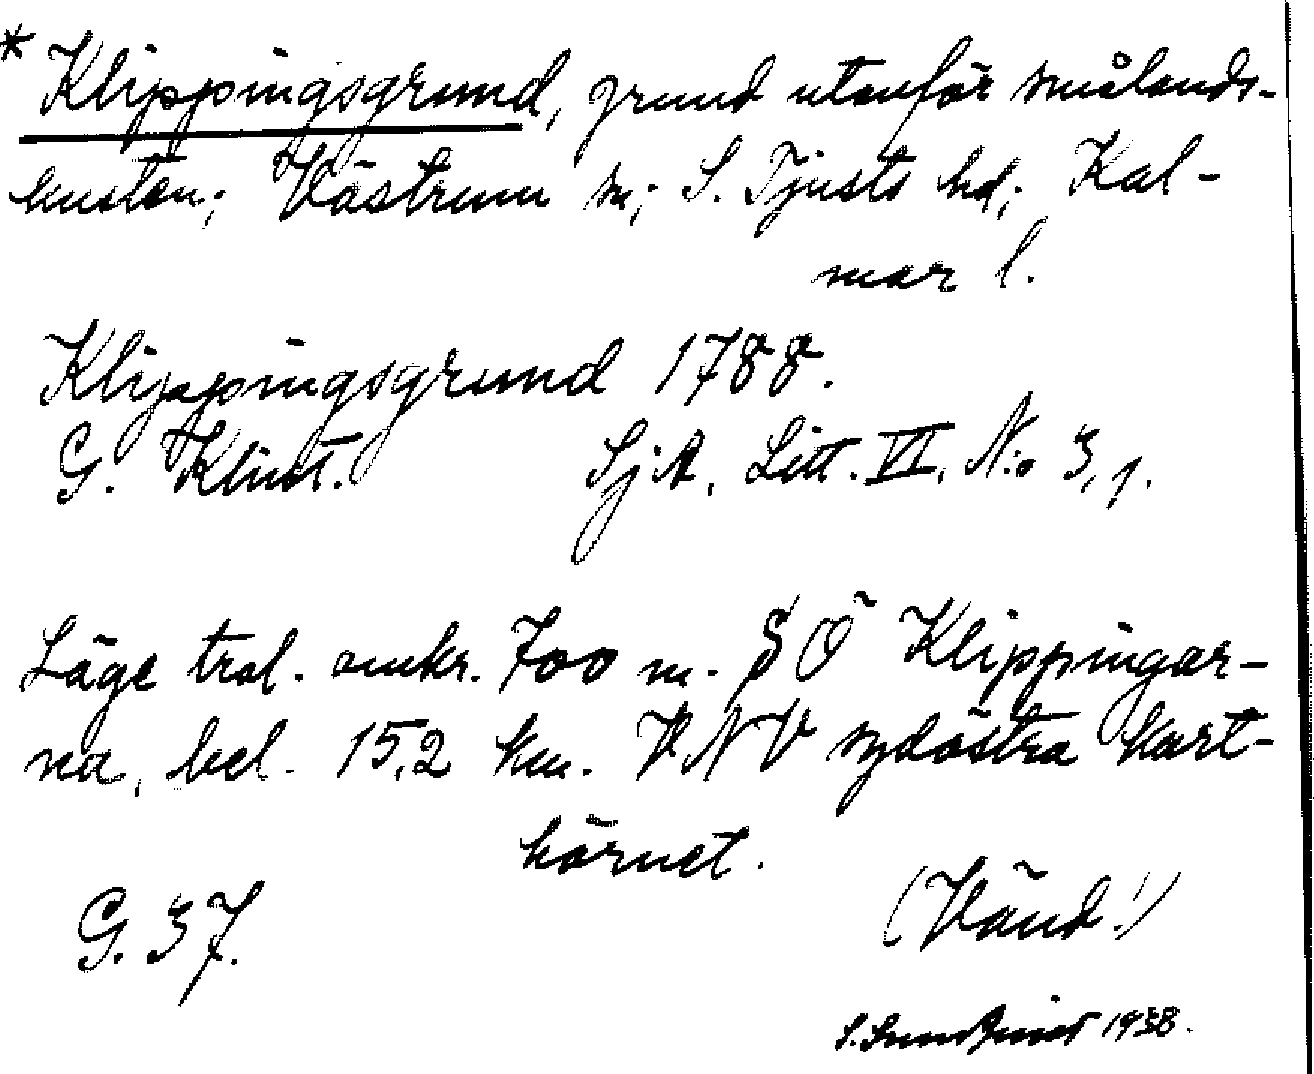 * Klippingsgrund, grund utanför smålands-
kusten; Västrum sn; S. Tjusts hd; Kal-
mar l.
Klippingsgrund 1788.
G. Klint. SjA. Litt. VI. N:o 3, 1.
Läge trol. omkr. 700 m. SÖ Klippingar-
na, bel. 15,2 km. VNV sydöstra kart-
hörnet.
G. 37. (Vänd!)
1938.